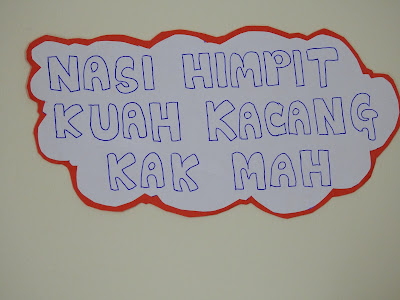 NASI HIMPIT
KUAH KACANG
KAK MAH